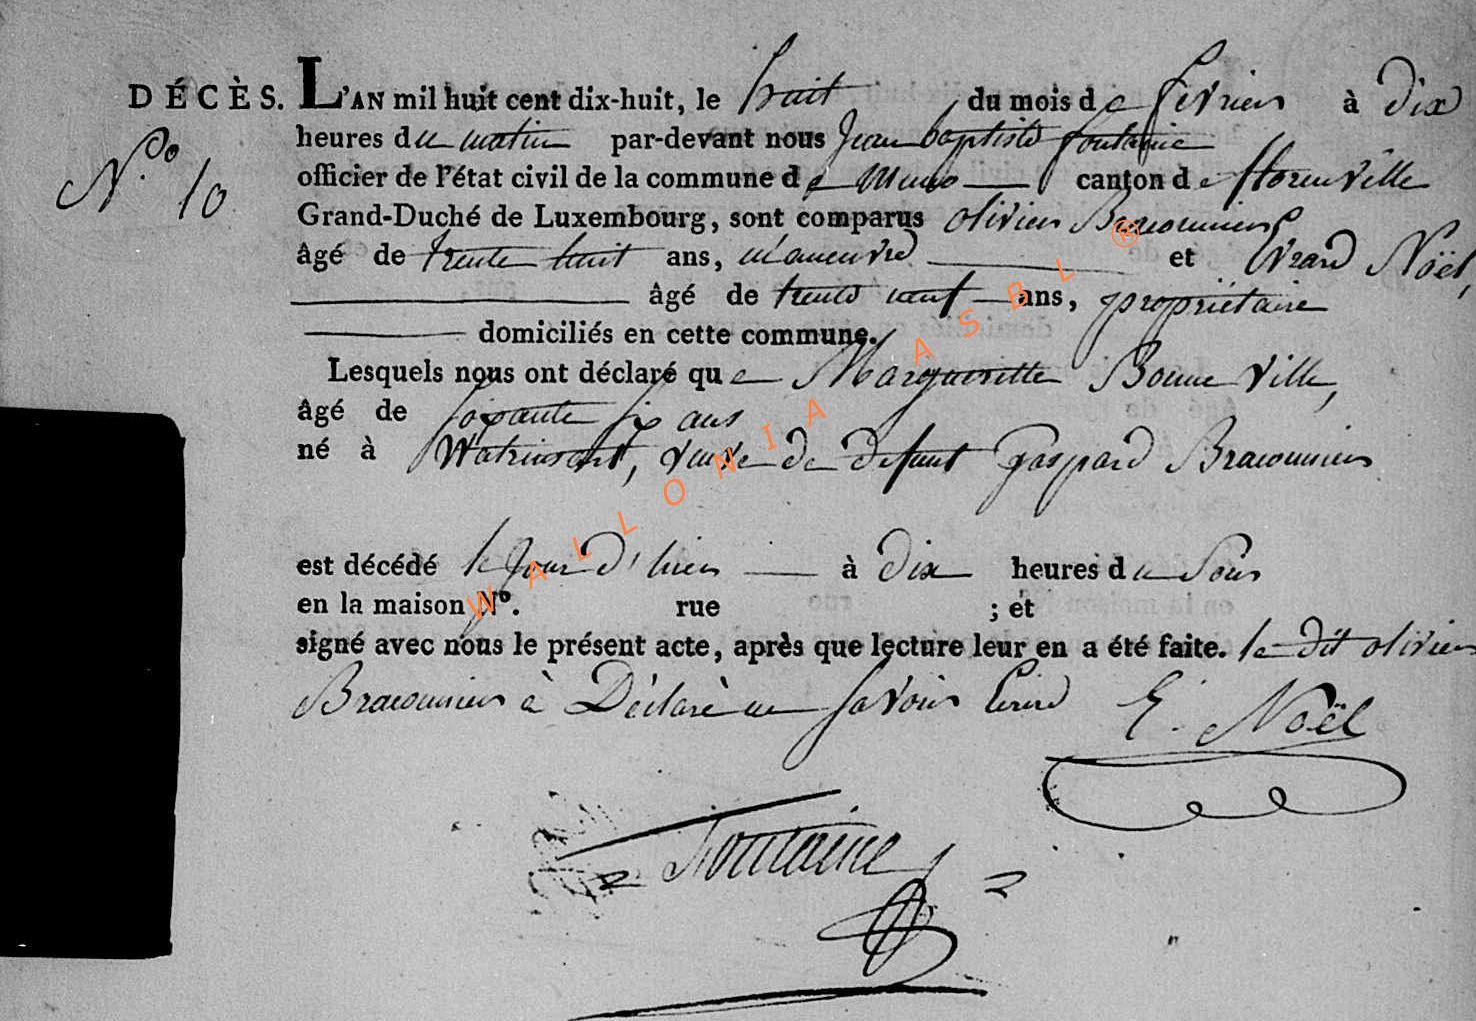 DÉCÈS. L'AN mil huit cent dix-huit, le huit du mois de fevrier à dix
heures du matin par-devant nous Jean baptiste fontaine
N.º 10
officier de l'état civil de la commune de Muno canton de florenville
Grand-Duché de Luxembourg, sont comparus olivier Braconnier
âgé de trente huit ans, manœuvre et Evrard Noël,
âgé de trente neuf ans, propriétaire
domiciliés en cette commune.
Lesquels nous ont déclaré que Margueritte Bonne Ville,
âgé de soixante six ans
né à Watrinsart, veuve de defunt gaspard Braconnier
est décédé le jour d'hier à dix heures du soir
en la maison Nº. rue ; et
signé avec nous le présent acte, après que lecture leur en a été faite. le dit olivier
Braconnier à Déclaré ne savoir Ecrire E. Noël
Fontaine
WALLONIA ASBL ®